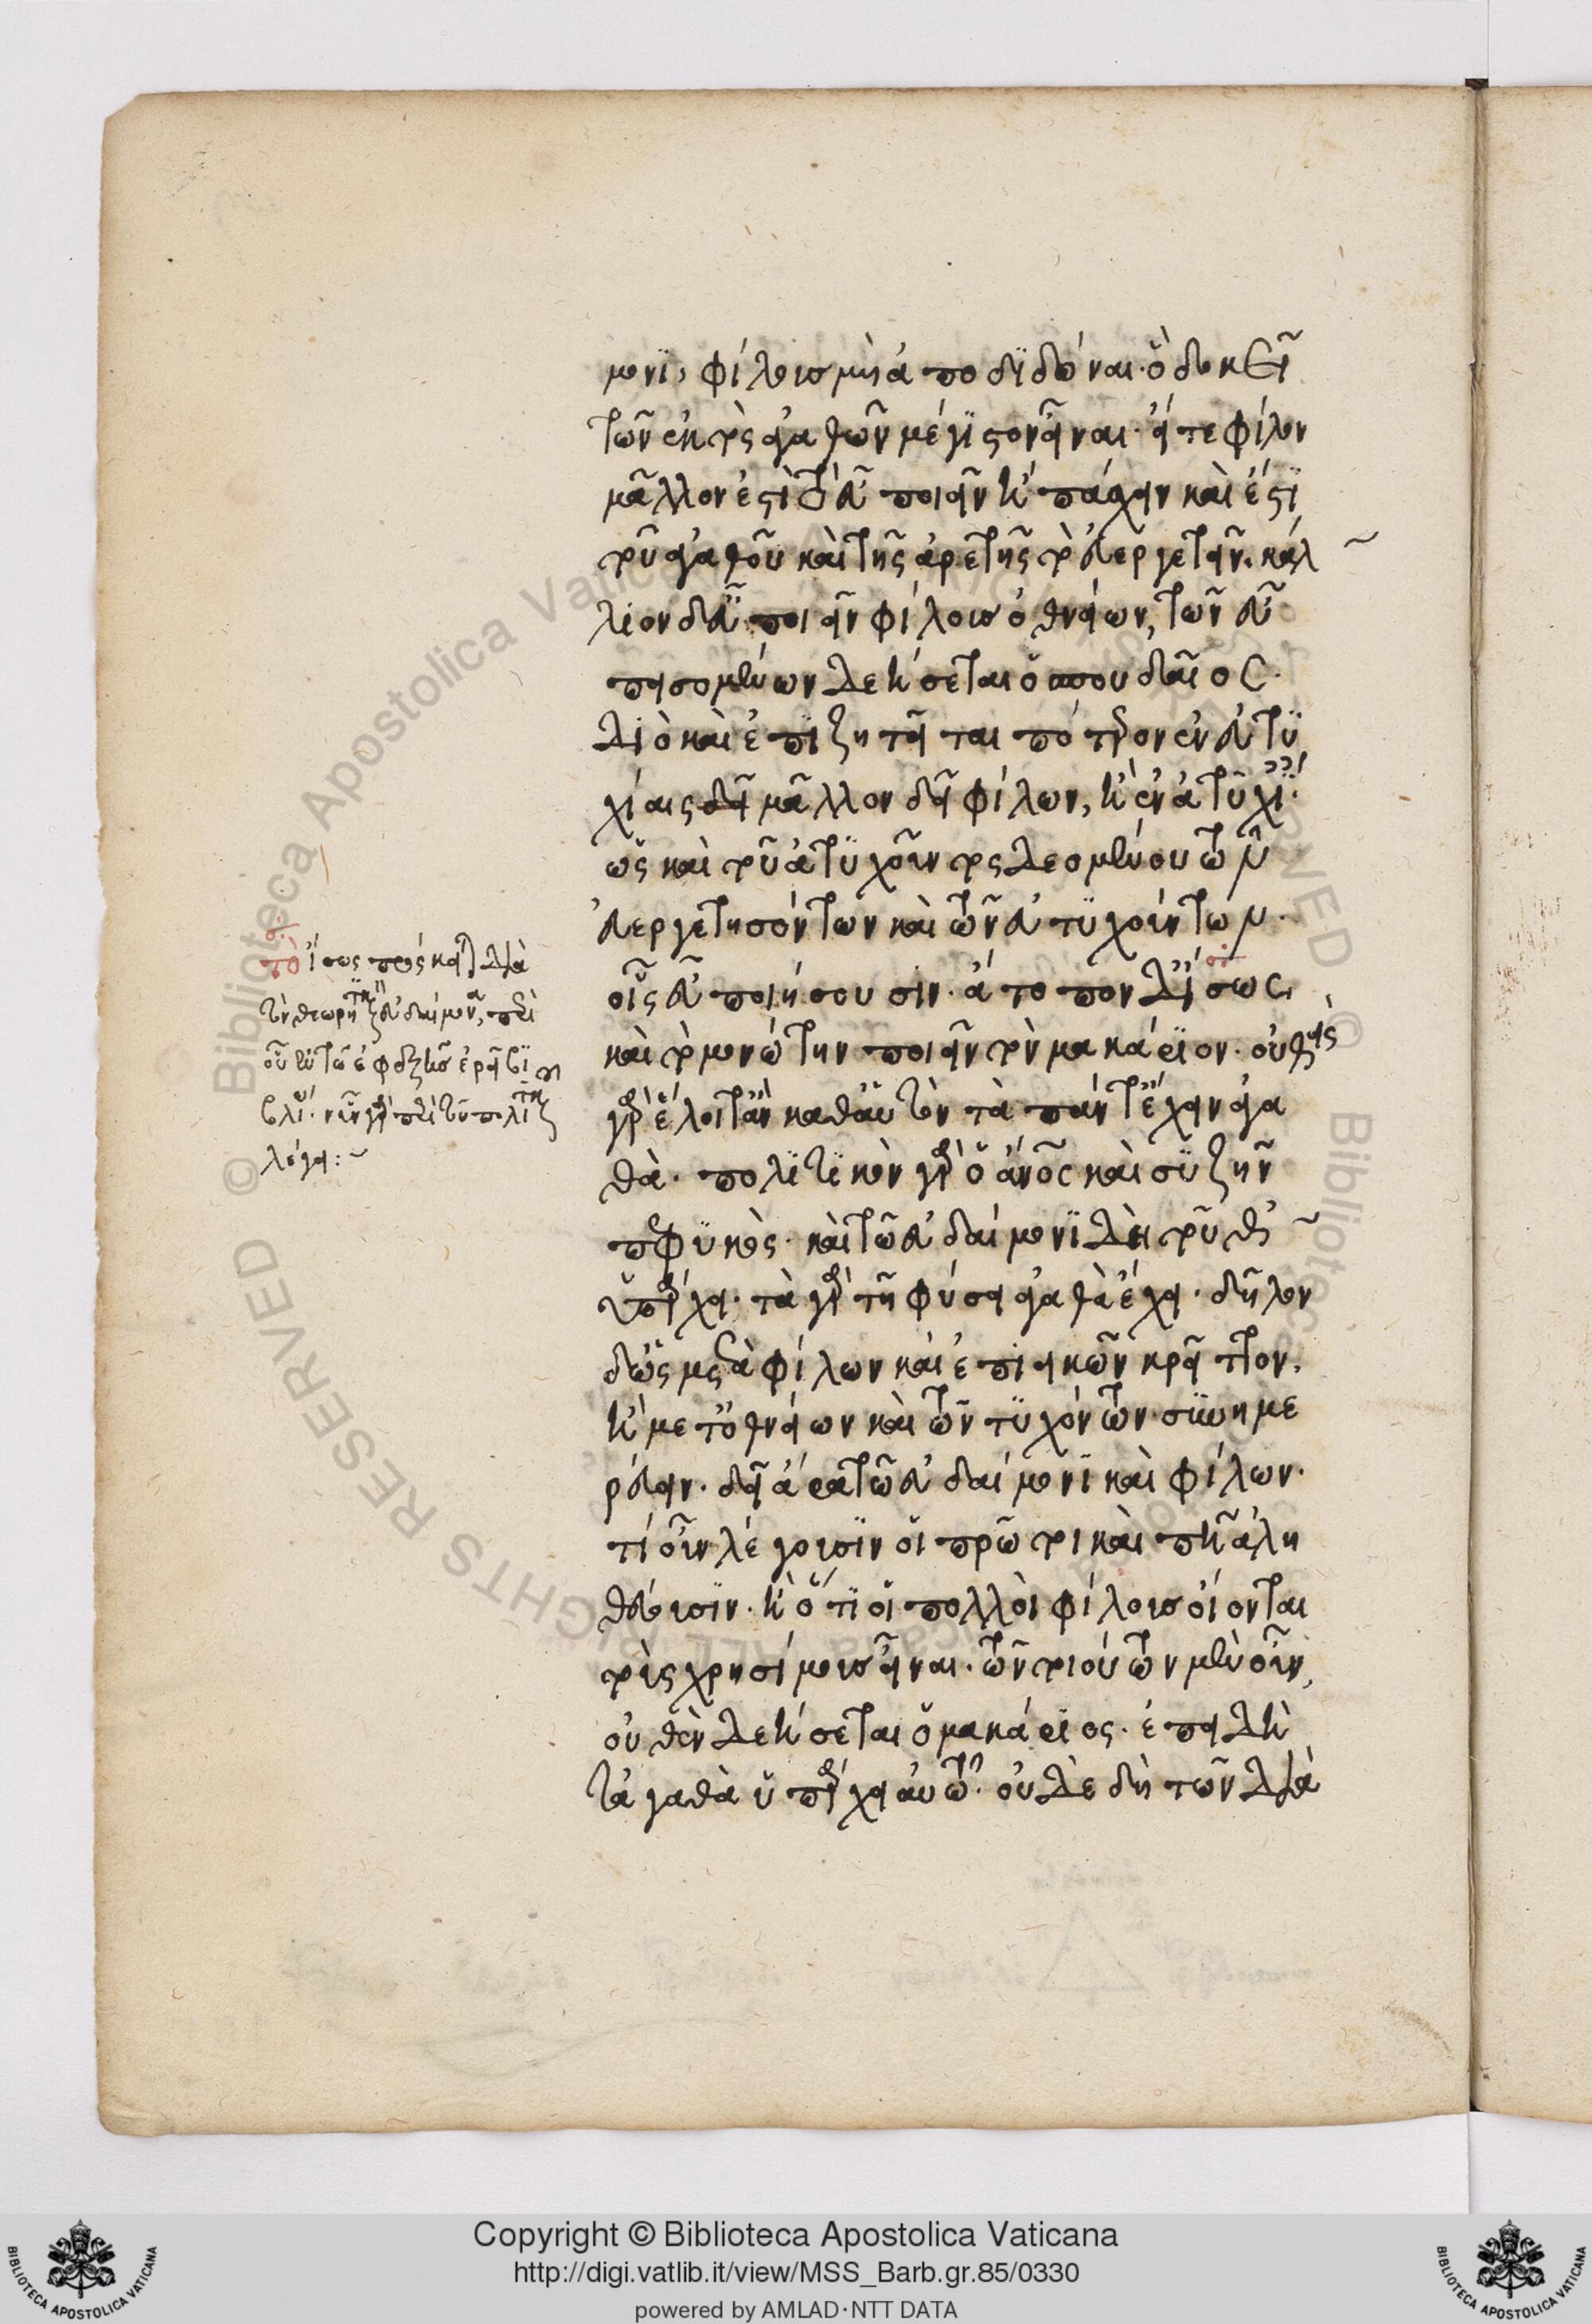 μονι, φίλους μὴ ἀποδιδόναι. ὃ δοκεῖ
τῶν ἐκτὸς ἀγαθῶν μέγιστον εἶναι. εἴ τε φίλου
μᾶλλον ἐστὶ τὸ εὖ ποιεῖν ἢ πάσχειν καὶ ἔστι
τοῦ ἀγαθοῦ καὶ τῆς ἀρετῆς τὸ εὐεργετεῖν. κάλ
λιον δ' εὖ ποιεῖν φίλους ὀθνείων, τῶν εὖ
πεισομένων δεήσεται ὁ σπουδαῖος.
διὸ καὶ ἐπιζητεῖται πότερον ἐν εὐτυ
χίαις δεῖ μᾶλλον δεῖ φίλων, ἢ ἐν ἀτυχίαις.
ὡς καὶ τοῦ ἀτυχοῦντος δεομένου τῶν
εὐεργετησόντων καὶ τῶν εὐτυχούντων.
οὓς εὖ ποιήσουσιν. ἄτοπον δ' ἴσως,
καὶ τὸ μονώτην ποιεῖν τὸν μακάριον. οὐθεὶς
γὰρ ἕλοιτ' ἂν καθ' αὑτὸν τὰ πάντ' ἔχειν ἀγα
θά. πολιτικὸν γὰρ ὁ ἄνος καὶ συζῆν
πεφυκός. καὶ τῶ εὐδαίμονι δὴ τοῦθ'
ὑπάρχει. τὰ γὰρ τῆ φύσει ἀγαθὰ ἔχει. δῆλον
δ' ὡς μετὰ φίλων καὶ ἐπιεικῶν κρεῖττον,
ἢ μετ' ὀθνείων καὶ τῶν τυχόντων συνημε
ρεύειν. δεῖ ἄρα τῶ εὐδαίμονι καὶ φίλων.
τί οὖν λέγουσιν οἱ πρῶτοι καὶ πῆ ἀλη
θεύουσιν. ἢ ὅτι οἱ πολλοὶ φίλους οἴονται
τοὺς χρησίμους εἶναι. τῶν τοιούτων μὲν οὖν,
οὐθὲν δεήσεται ὁ μακάριος. ἐπειδὴ
τἀγαθὰ ὑπάρχει αὐτῶ. οὐδὲ δὴ τῶν διὰ
τὸ ἴσως πρόσκειται διὰ
τὸν θεωρητικὸν εὐδαίμονα, περὶ
οὗ ἐν τῶ ἐφεξῆς ἐρεῖ βι
βλίω. νῦν γὰρ περὶ τοῦ πολιτικοῦ
λέγει:~